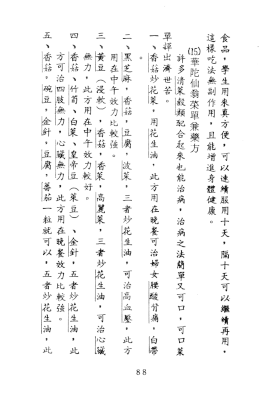 食品，學生用來真方便，可以連續服用十天，隔十天可以繼續再用，
這樣吃法無副作用，且能增進身體健康。
⒂華陀仙翁菜單兼藥方
許多清菜穀類配合起來也能治病，治病之法簡單又可口，可口菜
單譯出濟世苦。
一、香菇炒花菜，用花生油，此方用在晚餐可治婦女腰酸背痛，白帶
二、黑芝麻，香菇，豆腐，波菜，三者炒花生油，可治高血壓，此方
用在中午效力比較強。
三、黃豆（浸軟），香菇，香菜，高麗菜，三者炒花生油，可治心臟
無力，此方用在中午效力較好。
四、香菇、竹荀、白菜、皇帝豆（萊豆）、金針，五者炒花生油，此
方可治四肢無力，心臟無力，此方用在晚餐效力比較強。
五、香菇，碗豆，金針，豆腐，蕃茄一粒就可以，五者炒花生油，此
88